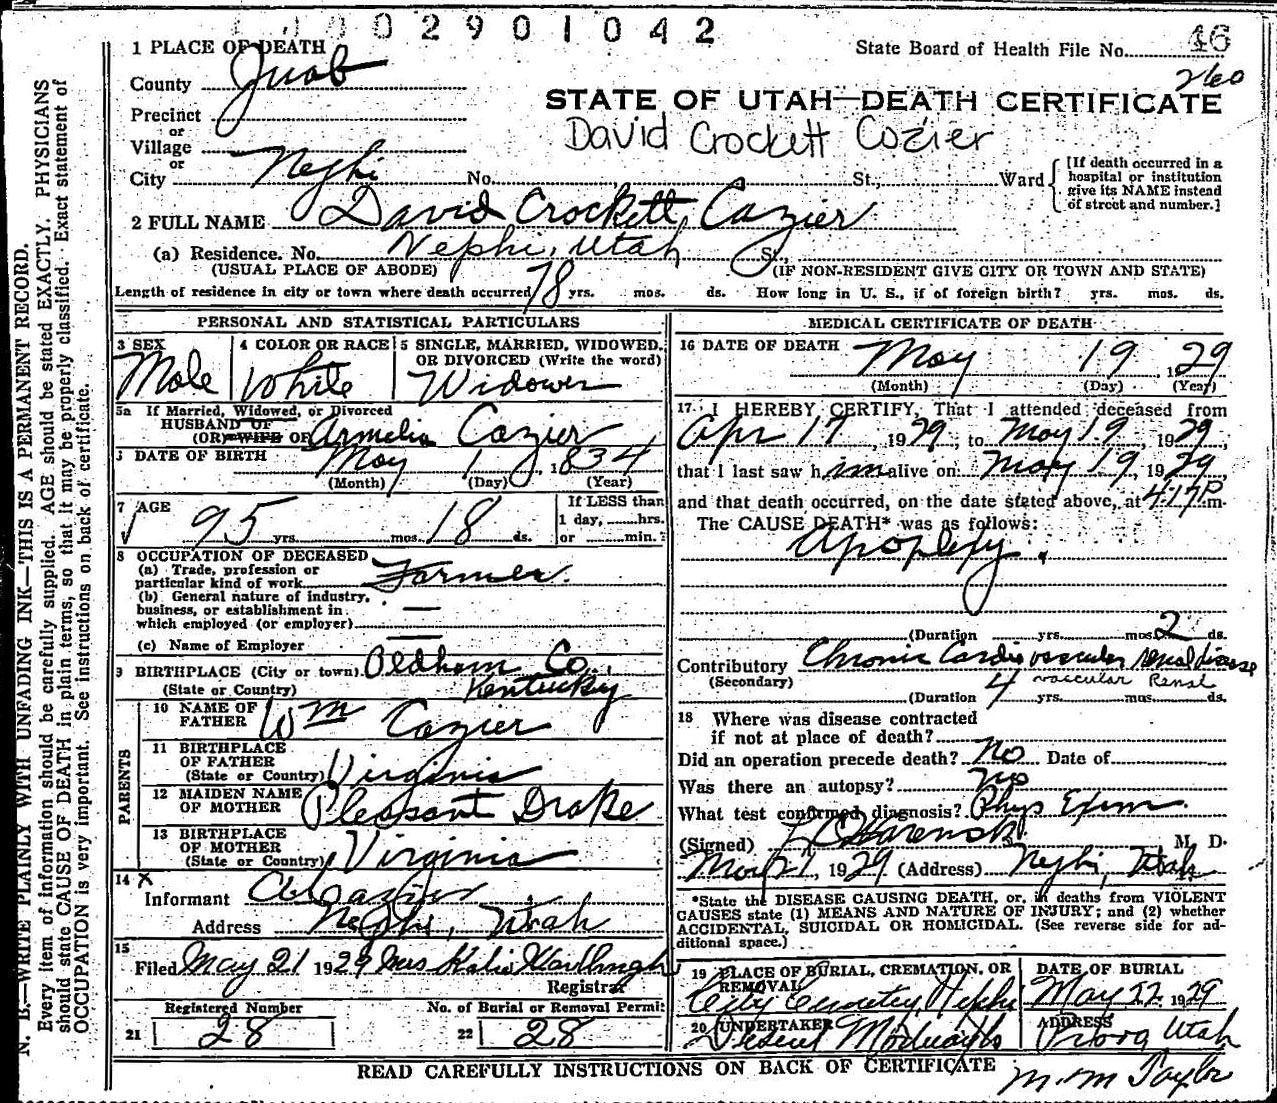 0 0 2 9 0 1 0 4 2
1 PLACE OF DEATH
State Board of Health File No. 46
County Juab
260
Precinct
STATE OF UTAH—DEATH CERTIFICATE
or
Village
David Crockett Cozier
or
City Nephi No. St., Ward
[If death occurred in a hospital or institution give its NAME instead of street and number.]
2 FULL NAME David Crockett Cazier
(a) Residence. No. Nephi, Utah St.,
(USUAL PLACE OF ABODE) (IF NON-RESIDENT GIVE CITY OR TOWN AND STATE)
Length of residence in city or town where death occurred 78 yrs. mos. ds. How long in U. S., if of foreign birth? yrs. mos. ds.
PERSONAL AND STATISTICAL PARTICULARS
3 SEX
Male
4 COLOR OR RACE
White
5 SINGLE, MARRIED, WIDOWED, OR DIVORCED (Write the word)
Widower
5a If Married, Widowed, or Divorced
HUSBAND OF
(OR) WIFE OF Armelia Cazier
DATE OF BIRTH May 1, 1834
(Month) (Day) (Year)
7 AGE
95 yrs. mos. 18 ds.
If LESS than
1 day, hrs.
or min.?
8 OCCUPATION OF DECEASED
(a) Trade, profession or
particular kind of work Farmer.
(b) General nature of industry,
business, or establishment in
which employed (or employer) —
(c) Name of Employer —
9 BIRTHPLACE (City or town) Oldham Co.,
(State or Country) Kentucky
PARENTS
10 NAME OF
FATHER Wm Cazier
11 BIRTHPLACE
OF FATHER
(State or Country) Virginia
12 MAIDEN NAME
OF MOTHER Pleasant Drake
13 BIRTHPLACE
OF MOTHER
(State or Country) Virginia
14 X
Informant Cazier
Address Nephi, Utah
15
Filed May 21 1929 Mrs Katie
Registrar
Registered Number
21 28
No. of Burial or Removal Permit
22 28
MEDICAL CERTIFICATE OF DEATH
16 DATE OF DEATH May 19, 1929
(Month) (Day) (Year)
17 I HEREBY CERTIFY, That I attended deceased from
Apr 17, 1929, to May 19, 1929,
that I last saw him alive on May 19, 1929
and that death occurred, on the date stated above, at 4:17 P m.
The CAUSE DEATH* was as follows:
Apoplexy.
(Duration yrs. mos. 2 ds.
Contributory Chronic Cardio vascular renal disease
(Secondary) vascular Renal
(Duration 4 yrs. mos. ds.
18 Where was disease contracted
if not at place of death?
Did an operation precede death? No Date of
Was there an autopsy? No
What test confirmed diagnosis? Phys Exam.
(Signed) M. D.
May 21, 1929 (Address) Nephi, Utah
*State the DISEASE CAUSING DEATH, or, in deaths from VIOLENT
CAUSES state (1) MEANS AND NATURE OF INJURY; and (2) whether
ACCIDENTAL, SUICIDAL OR HOMICIDAL. (See reverse side for ad-
ditional space.)
19 PLACE OF BURIAL, CREMATION, OR
REMOVAL
City Cemetery, Nephi
DATE OF BURIAL
May 22, 1929
20 UNDERTAKER
Deseret
ADDRESS
Provo Utah
READ CAREFULLY INSTRUCTIONS ON BACK OF CERTIFICATE
M. M Taylor
N. B.—WRITE PLAINLY WITH UNFADING INK—THIS IS A PERMANENT RECORD.
Every item of information should be carefully supplied. AGE should be stated EXACTLY. PHYSICIANS
should state CAUSE OF DEATH in plain terms, so that it may be properly classified. Exact statement of
OCCUPATION is very important. See instructions on back of certificate.